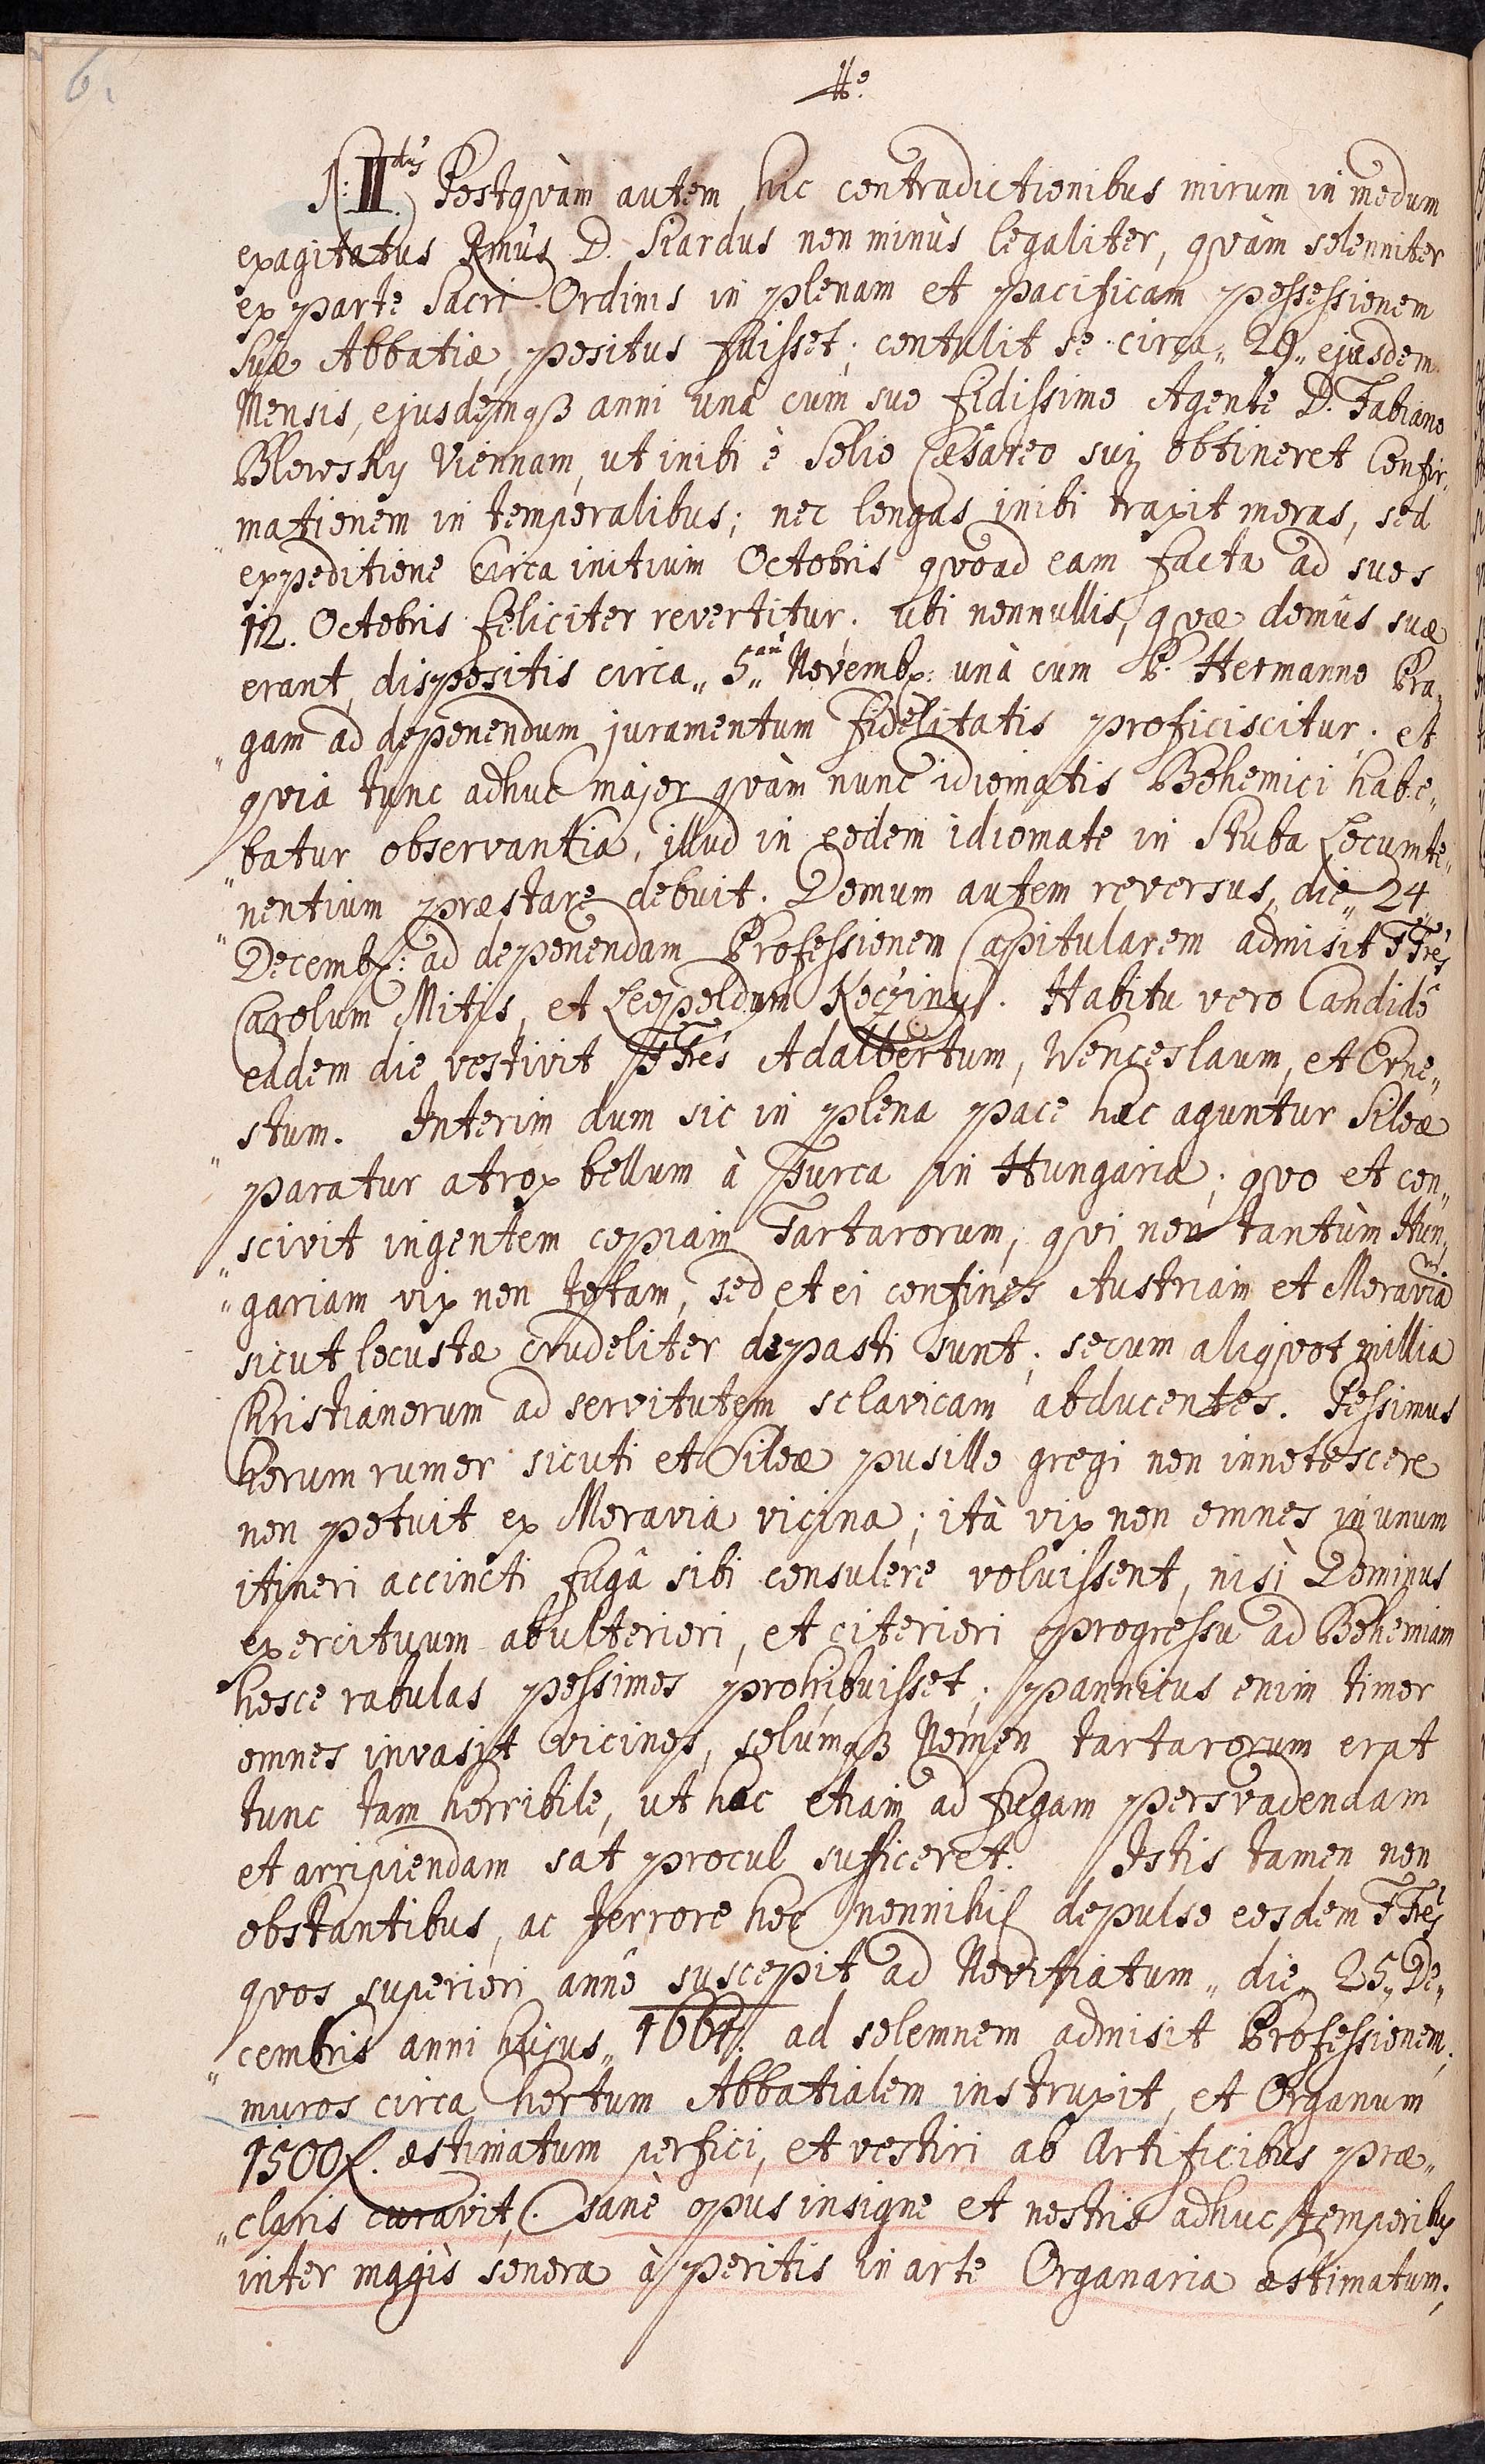 6.
4º.
§: II.dus Postqvàm autem hic contradictionibus mirum in modum
exagitatus Rmus D. Siardus non minùs legaliter, qvàm solenniter
ex parte Sacri Ordinis in plenam et pacificam possessionem
suæ Abbatiæ positus fuisset; contulit se circa „ 29 „ ejusdem
Mensis, ejusdemqȝ anni unà cum suo fidissimo Agente D. Fabiano
Blowsky Viennam, ut inibi è Solio Cæsareo sui obtineret Confir„
„mationem in temporalibus; nec longas inibi traxit moras, sed
expeditione circa initium Octobris qvoad eam facta ad suos
12. Octobris feliciter revertitur. ubi nonnullis, qvæ domûs suæ
erant, dispositis circa „ 5am „ Novembr: unà cum P. Hermanno Pra„
„gam ad deponendum juramentum fidelitatis proficiscitur; et
qvia tunc adhuc major qvàm nunc idiomatis Bohemici habe„
„batur observantia, illud in eodem idiomate in Stuba Locumte„
„nentium præstare debuit. Domum autem reversus, die „ 24 „
Decembr: ad deponendam Professionem Capitularem admisit FFres
Carolum Mitis, et Leopoldum . Habitu vero Candidô
eadem die vestivit FFres Adalbertum, Wenceslaum, et Erne„
„stum. Interim dum sic in plena pace hæc aguntur Siloæ
paratur atrox bellum à Turca in Hungaria; qvo et con„
„scivit ingentem copiam Tartarorum, qvi non tantùm Hun„
„gariam vix non totam, sed et ei confines Austriam et Moraviam
sicut locustæ crudeliter depasti sunt; secum aliqvot millia
Christianorum ad servitutem sclavicam abducentes. Pessimus
horum rumor sicuti et Siloæ pusillo gregi non innotescere
non potuit ex Moravia vicina; ità vix non omnes in unum
itineri accincti fugâ sibi consulere voluissent, nisì Dominus
exercituum ab ulteriori, et citeriori progressu ad Bohemiam
hosce rabulas pessimos prohibuisset; pannicus enim timor
omnes invasit vicinos, solúmqȝ Nomen tartarorum erat
tunc tam horribile, ut hoc etiam ad fugam persvadendam
et arripiendam sat procul sufficeret. Istis tamen non
obstantibus, ac terrore hoc nonnihil depulso eosdem FFres
qvos superiori annô suscepit ad Novitiatum „ die „ 25 „ De„
„cembris anni hujus „ 1664. ad solemnem admisit Professionem;
muros circa hortum Abbatialem instruxit, et Organum
1500 f. æstimatum perfici, et vestiri ab Artificibus præ„
„claris curavit, (: sanè opus insigne et nostris adhuc temporibus
inter magìs sonora à peritis in arte Organaria æstimatum;